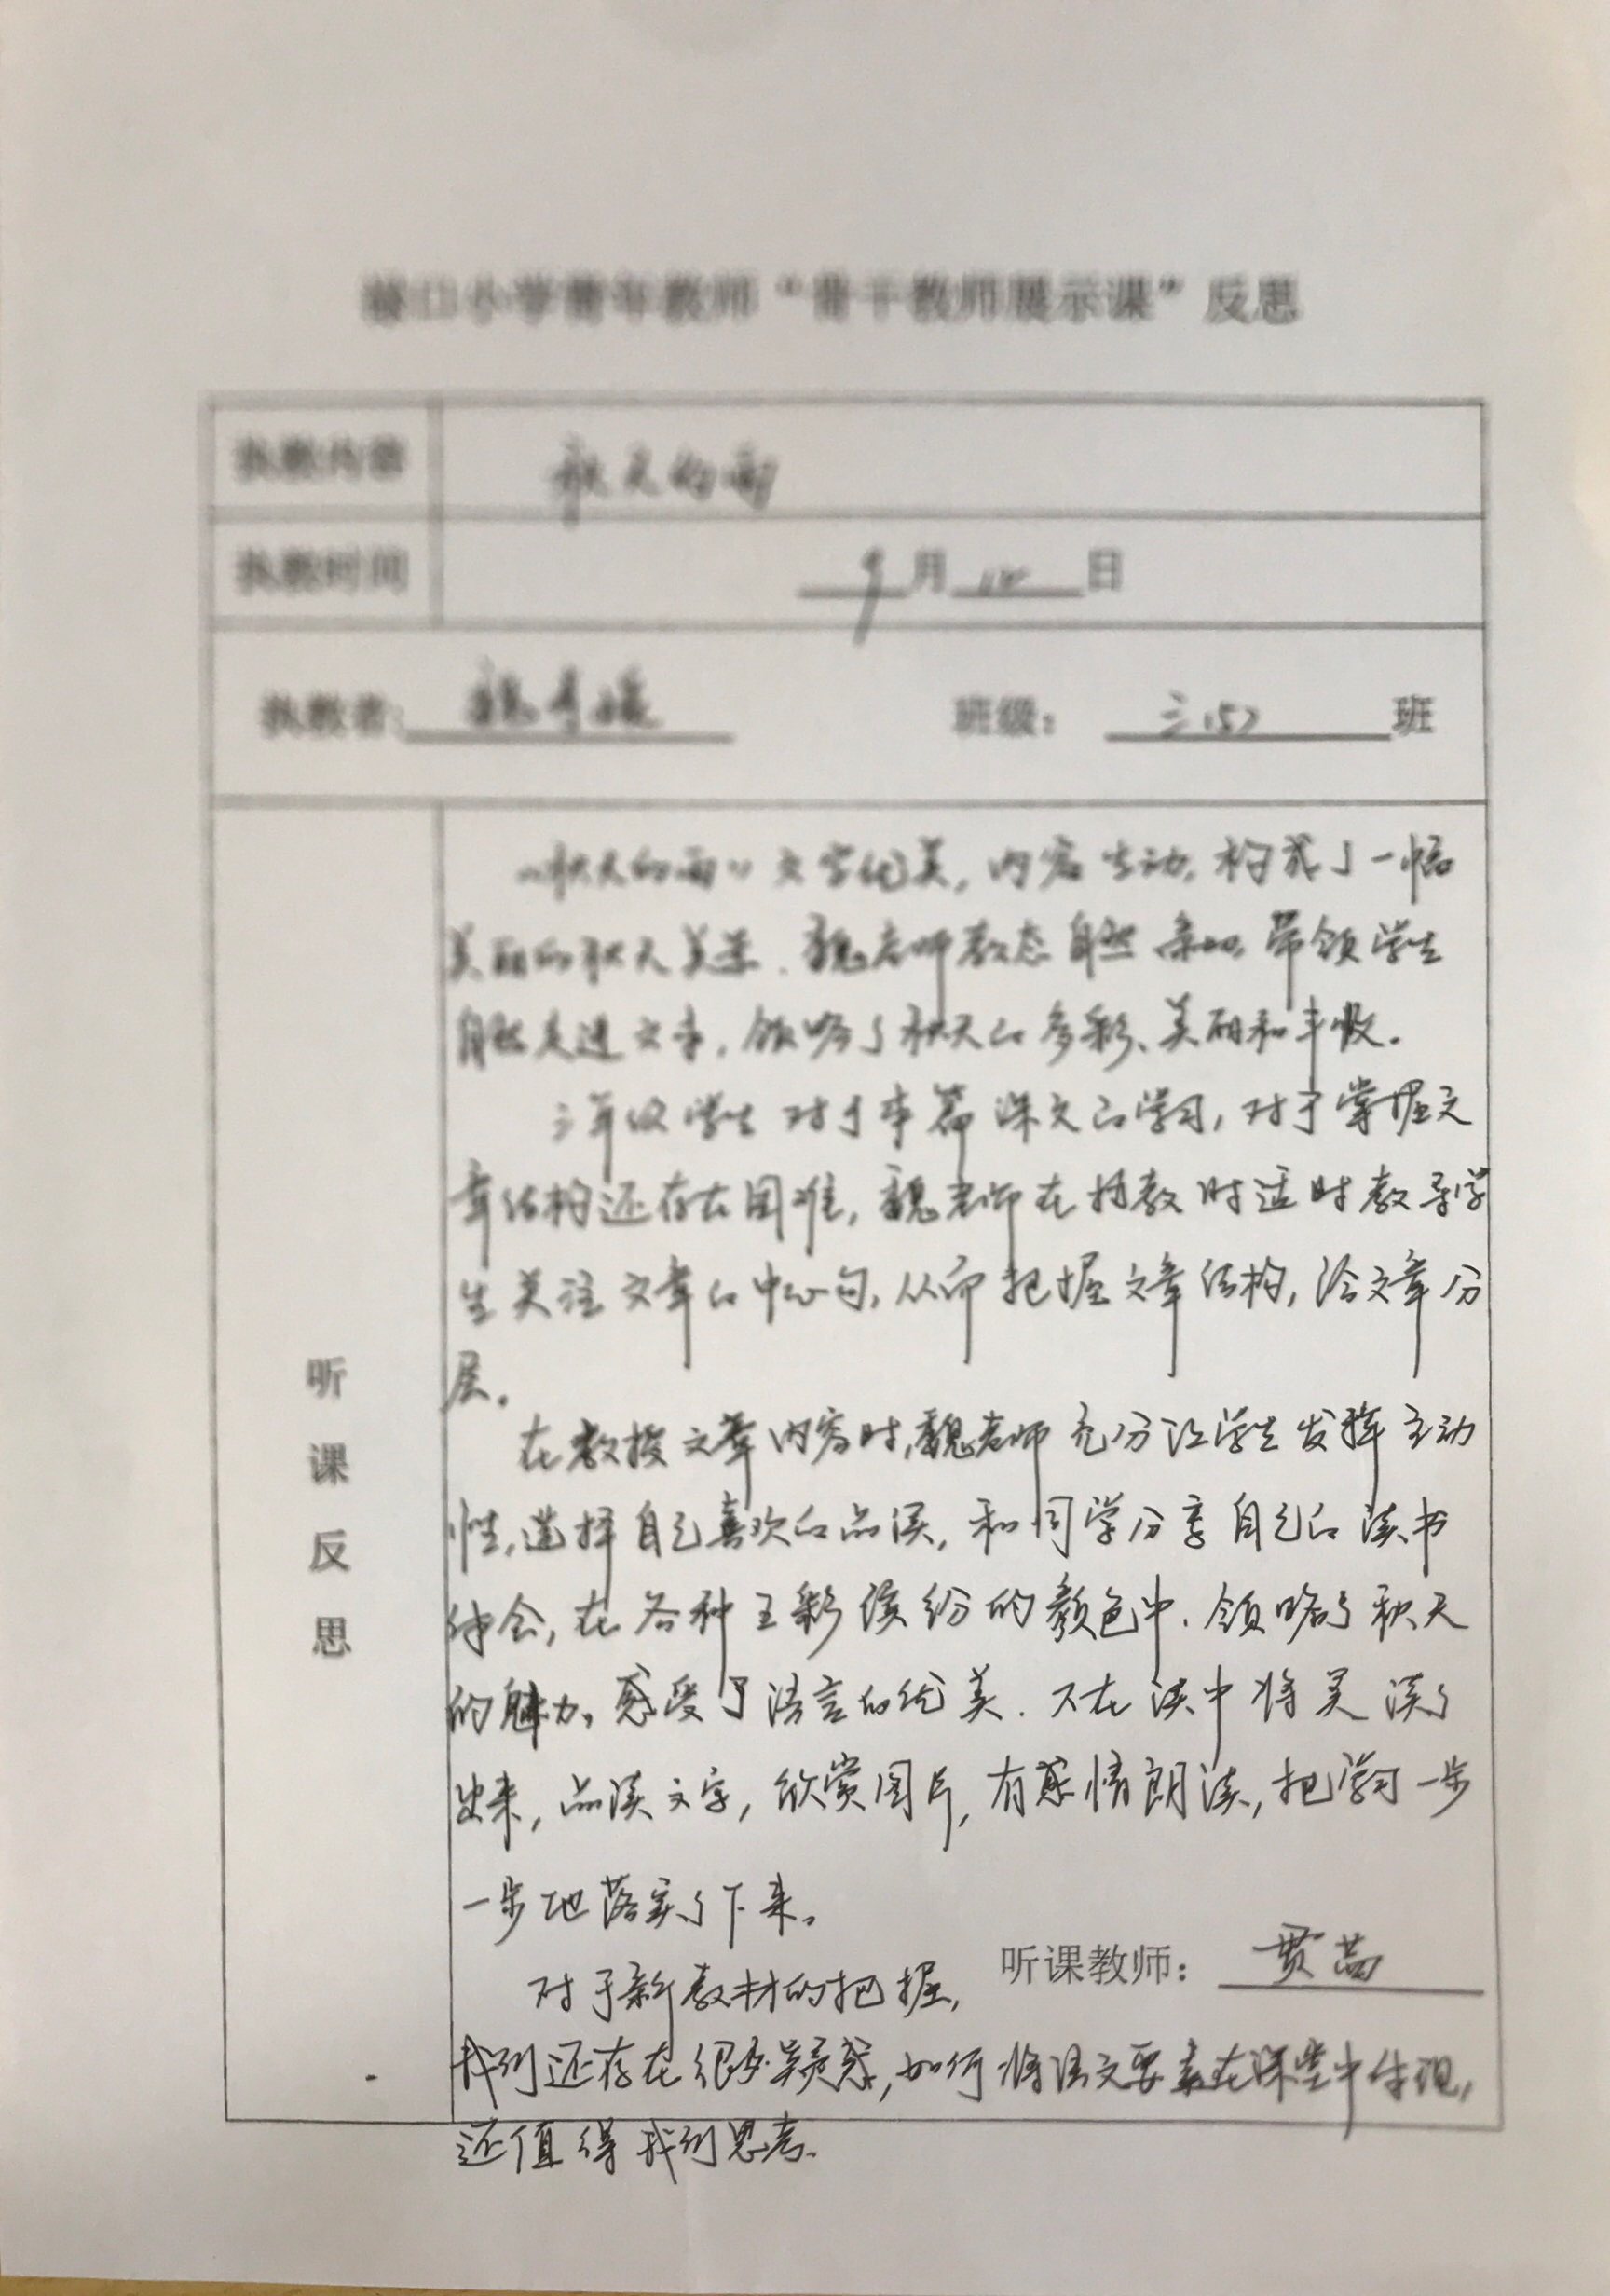 口小学青年教师“骨干教师展示课”反思
执教内容 秋天的雨
执教时间 9月 日
执教者: 魏 班级: 三(5) 班
《秋天的雨》文字优美,内容生动,构成了一幅
美丽的秋天美景.魏老师教态自然亲切,带领学生
自然走进文本,领略了秋天的多彩、美丽和丰收。
三年级学生对于本篇课文的学习,对于掌握文
章结构还存在困难,魏老师在执教时适时教导学
生关注文章的中心句,从而把握文章结构,给文章分
层。
在教授文章内容时,魏老师充分让学生发挥主动
性,选择自己喜欢的品读,和同学分享自己的读书
体会,在各种五彩缤纷的颜色中.领略了秋天
的魅力,感受了语言的优美.不在读中将美读了
出来,品读文字,欣赏图片,有感情朗读,把学习一步
一步地落实了下来。
对于新教材的把握,
我们还存在很多疑惑,如何将语文要素在课堂中体现,
还值得我们思考.
听课反思
听课教师: 贾